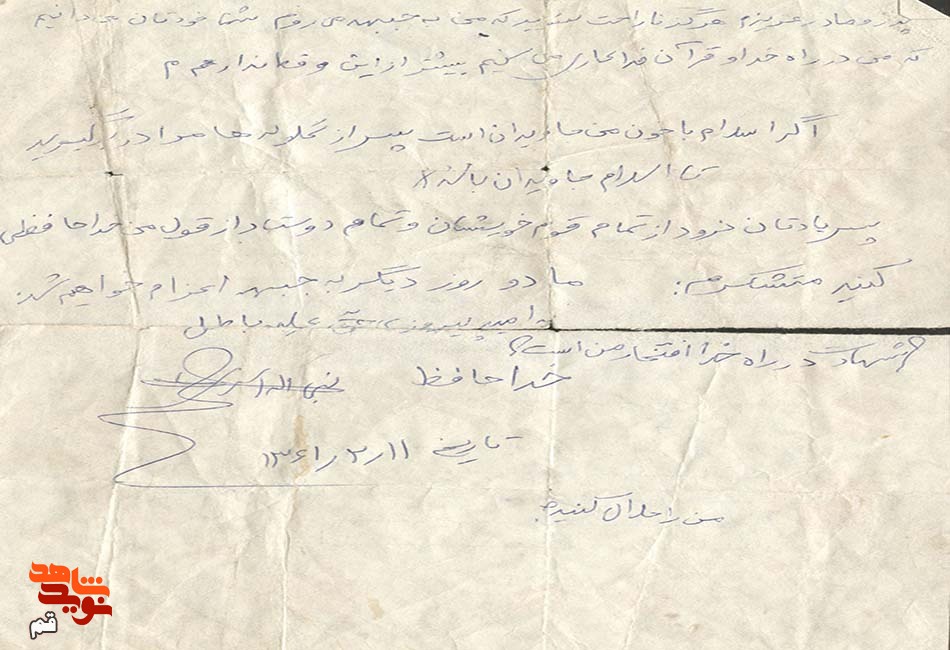 پدر و مادر عزیزم هرگز ناراحت نباشید که من به جبهه می روم شما خودتان می دانید
که من در راه خدا و قرآن فداکاری می کنیم بیشتر از این وقت ندارم م
اگر اسلام با خون من جاویدان است پس از گلوله ها مرا در گیرید
تا اسلام جاویدان باشد
پس یادتان نرود از تمام قوم خویشان و تمام دوستان از قول من خداحافظی
کنید متشکرم: ما دو روز دیگر به جبهه اعزام خواهیم شد.
به امید پیروزی حق علیه باطل
شهادت در راه خدا افتخار من است
خدا حافظ
تاریخ ۱۳۶۱/۲/۱۱
من را حلال کنید
نوید شاهد
قم